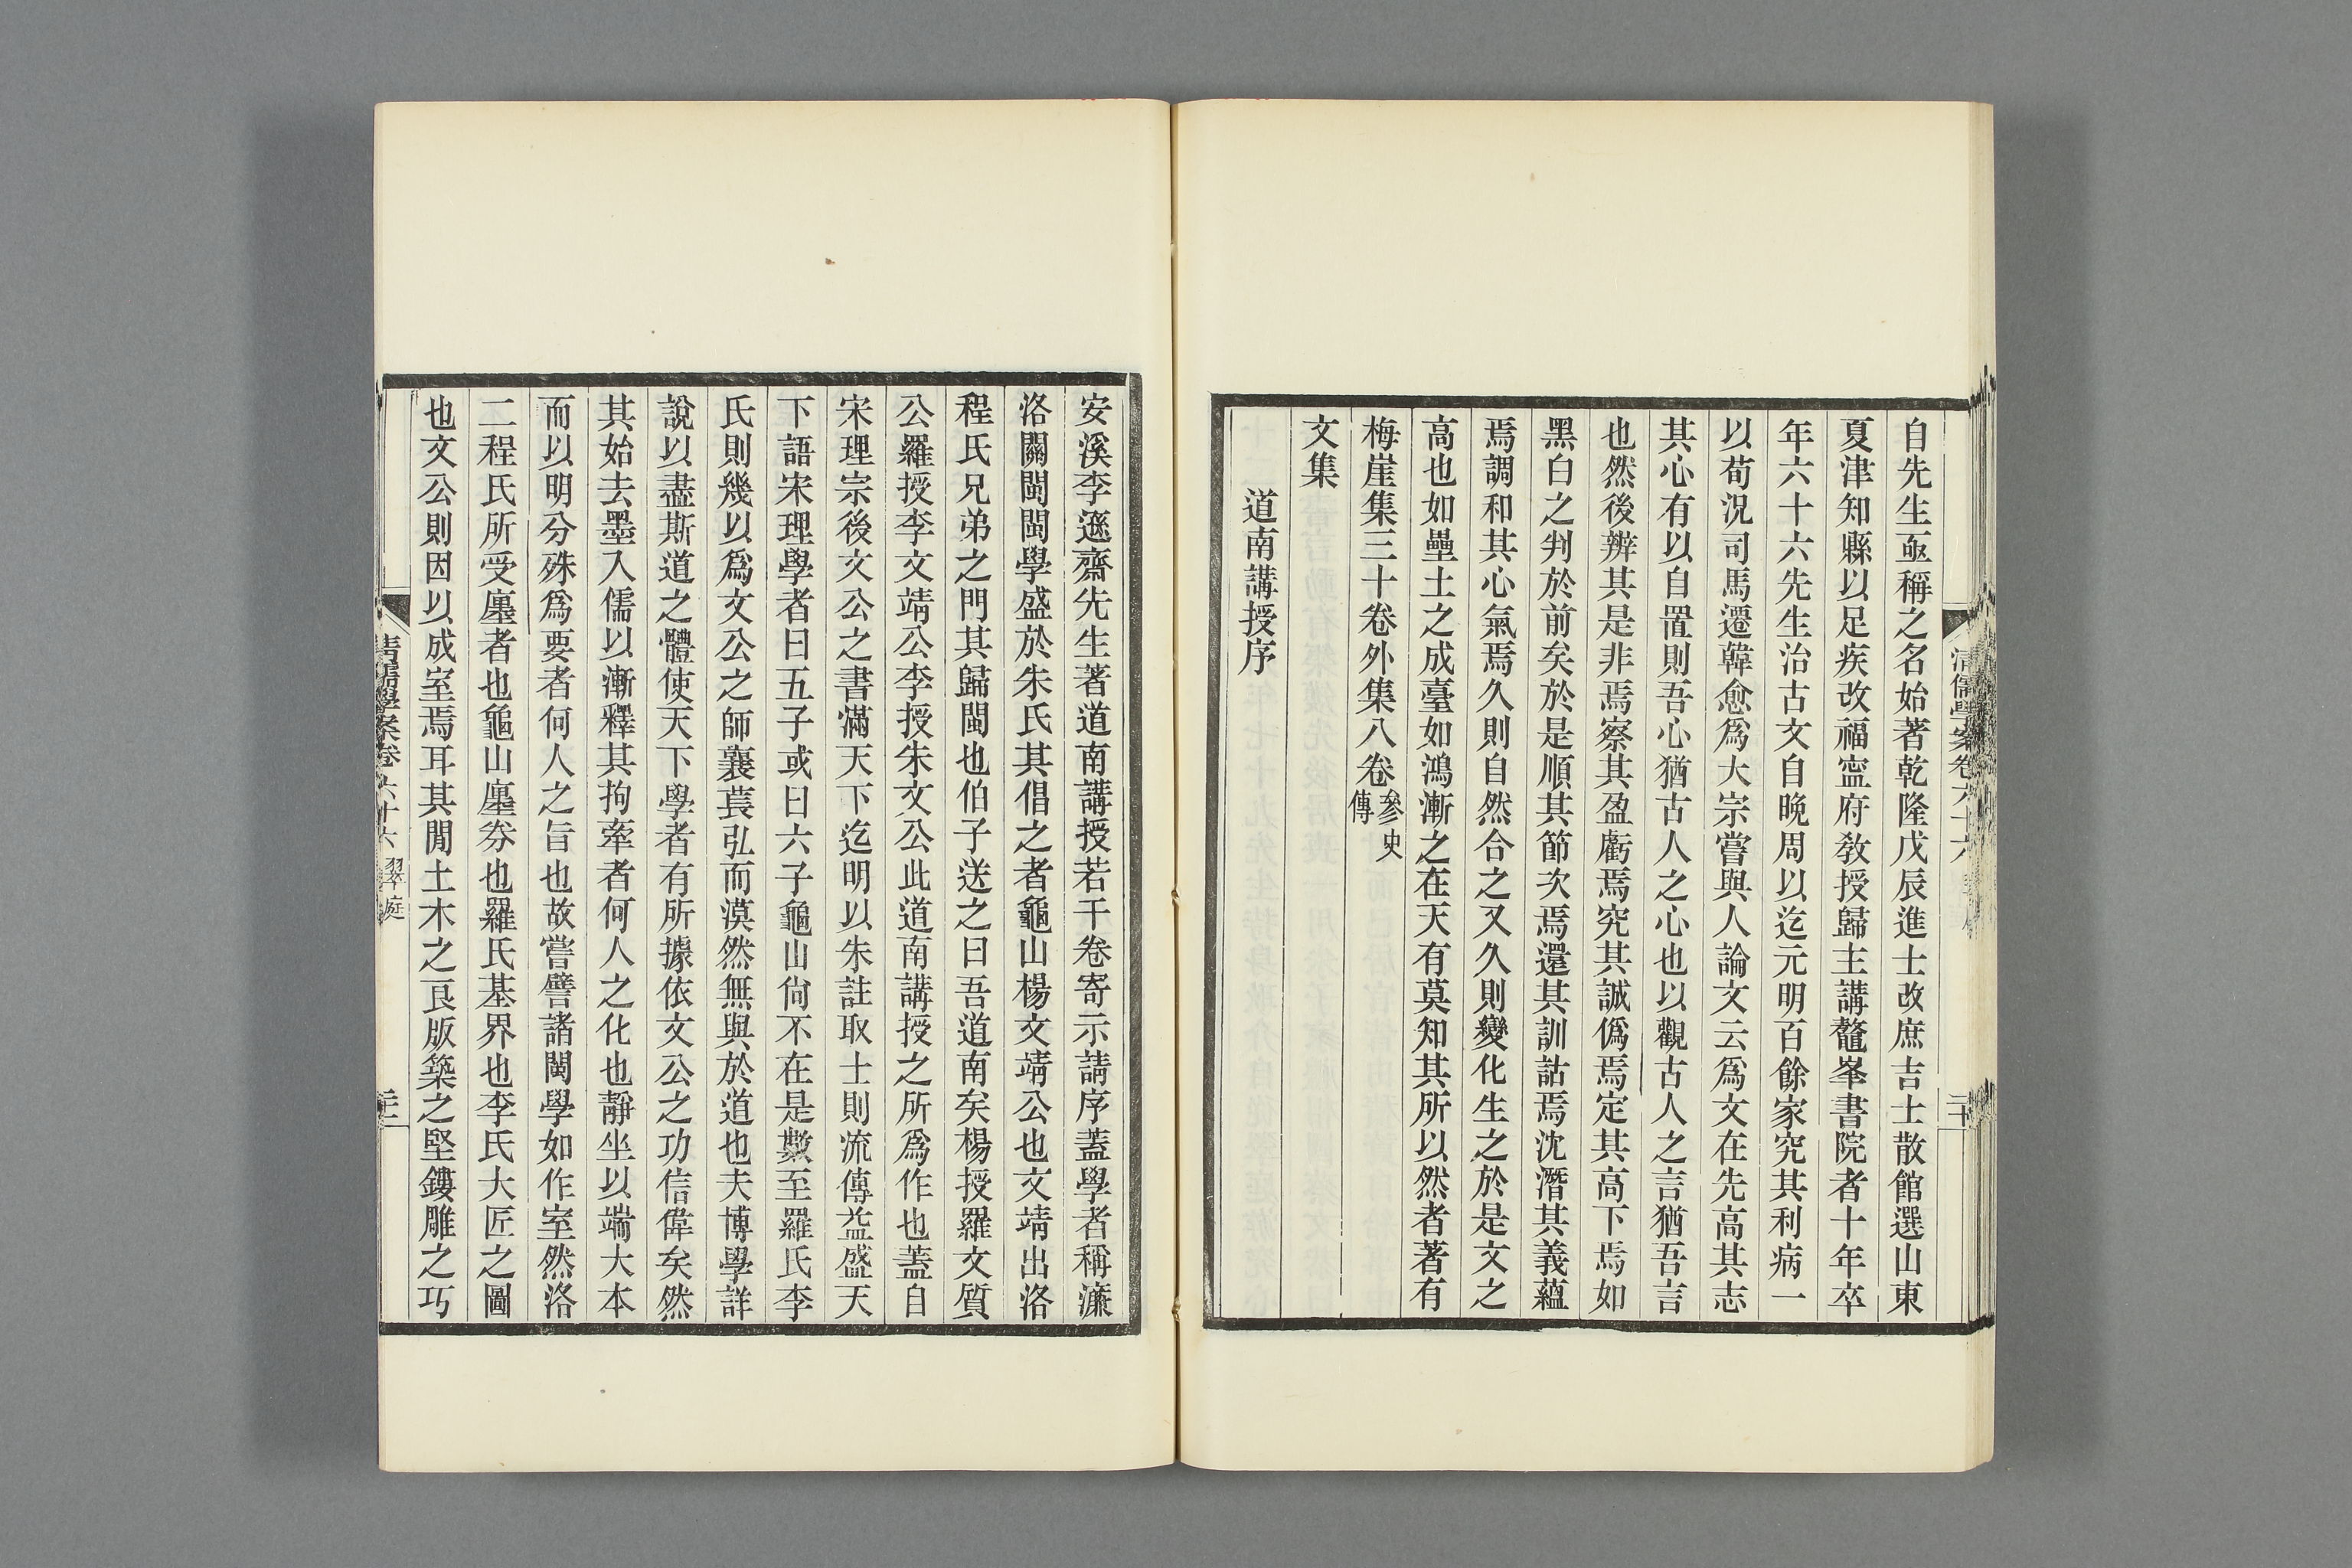 自先生亟稱之名始著乾隆戊辰進士改庶吉士散館選山東
夏津知縣以足疾改福寍府敎授歸主講鼇峯書院者十年卒
年六十六先生治古文自晚周以迄元明百餘家究其利病一
以荀況司馬遷韓愈爲大宗嘗與人論文云爲文在先高其志
其心有以自置則吾心猶古人之心也以觀古人之言猶吾言
也然後辨其是非焉察其盈虧焉究其誠僞焉定其高下焉如
黑白之判於前矣於是順其節次焉還其訓詁焉沈潛其義蘊
焉調和其心氣焉久則自然合之又久則變化生之於是文之
高也如壘土之成臺如鴻漸之在天有莫知其所以然者著有
梅崖集三十卷外集八卷參史傳
文集
道南講授序
清儒學案卷六十六
二十
安溪李遜齋先生著道南講授若干卷寄示請序蓋學者稱濂
洛關閩閩學盛於朱氏其倡之者龜山楊文靖公也文靖出洛
程氏兄弟之門其歸閩也伯子送之曰吾道南矣楊授羅文質
公羅授李文靖公李授朱文公此道南講授之所爲作也蓋自
宋理宗後文公之書滿天下迄明以朱註取士則流傳益盛天
下語宋理學者曰五子或曰六子龜山尙不在是數至羅氏李
氏則幾以爲文公之師襄萇弘而漠然無與於道也夫博學詳
說以盡斯道之體使天下學者有所據依文公之功信偉矣然
其始去墨入儒以漸釋其拘牽者何人之化也靜坐以端大本
而以明分殊爲要者何人之旨也故嘗譬諸閩學如作室然洛
二程氏所受廛者也龜山廛券也羅氏基界也李氏大匠之圖
也文公則因以成室焉耳其閒土木之良版築之堅鏤雕之巧
清儒學案卷六十六 翠庭